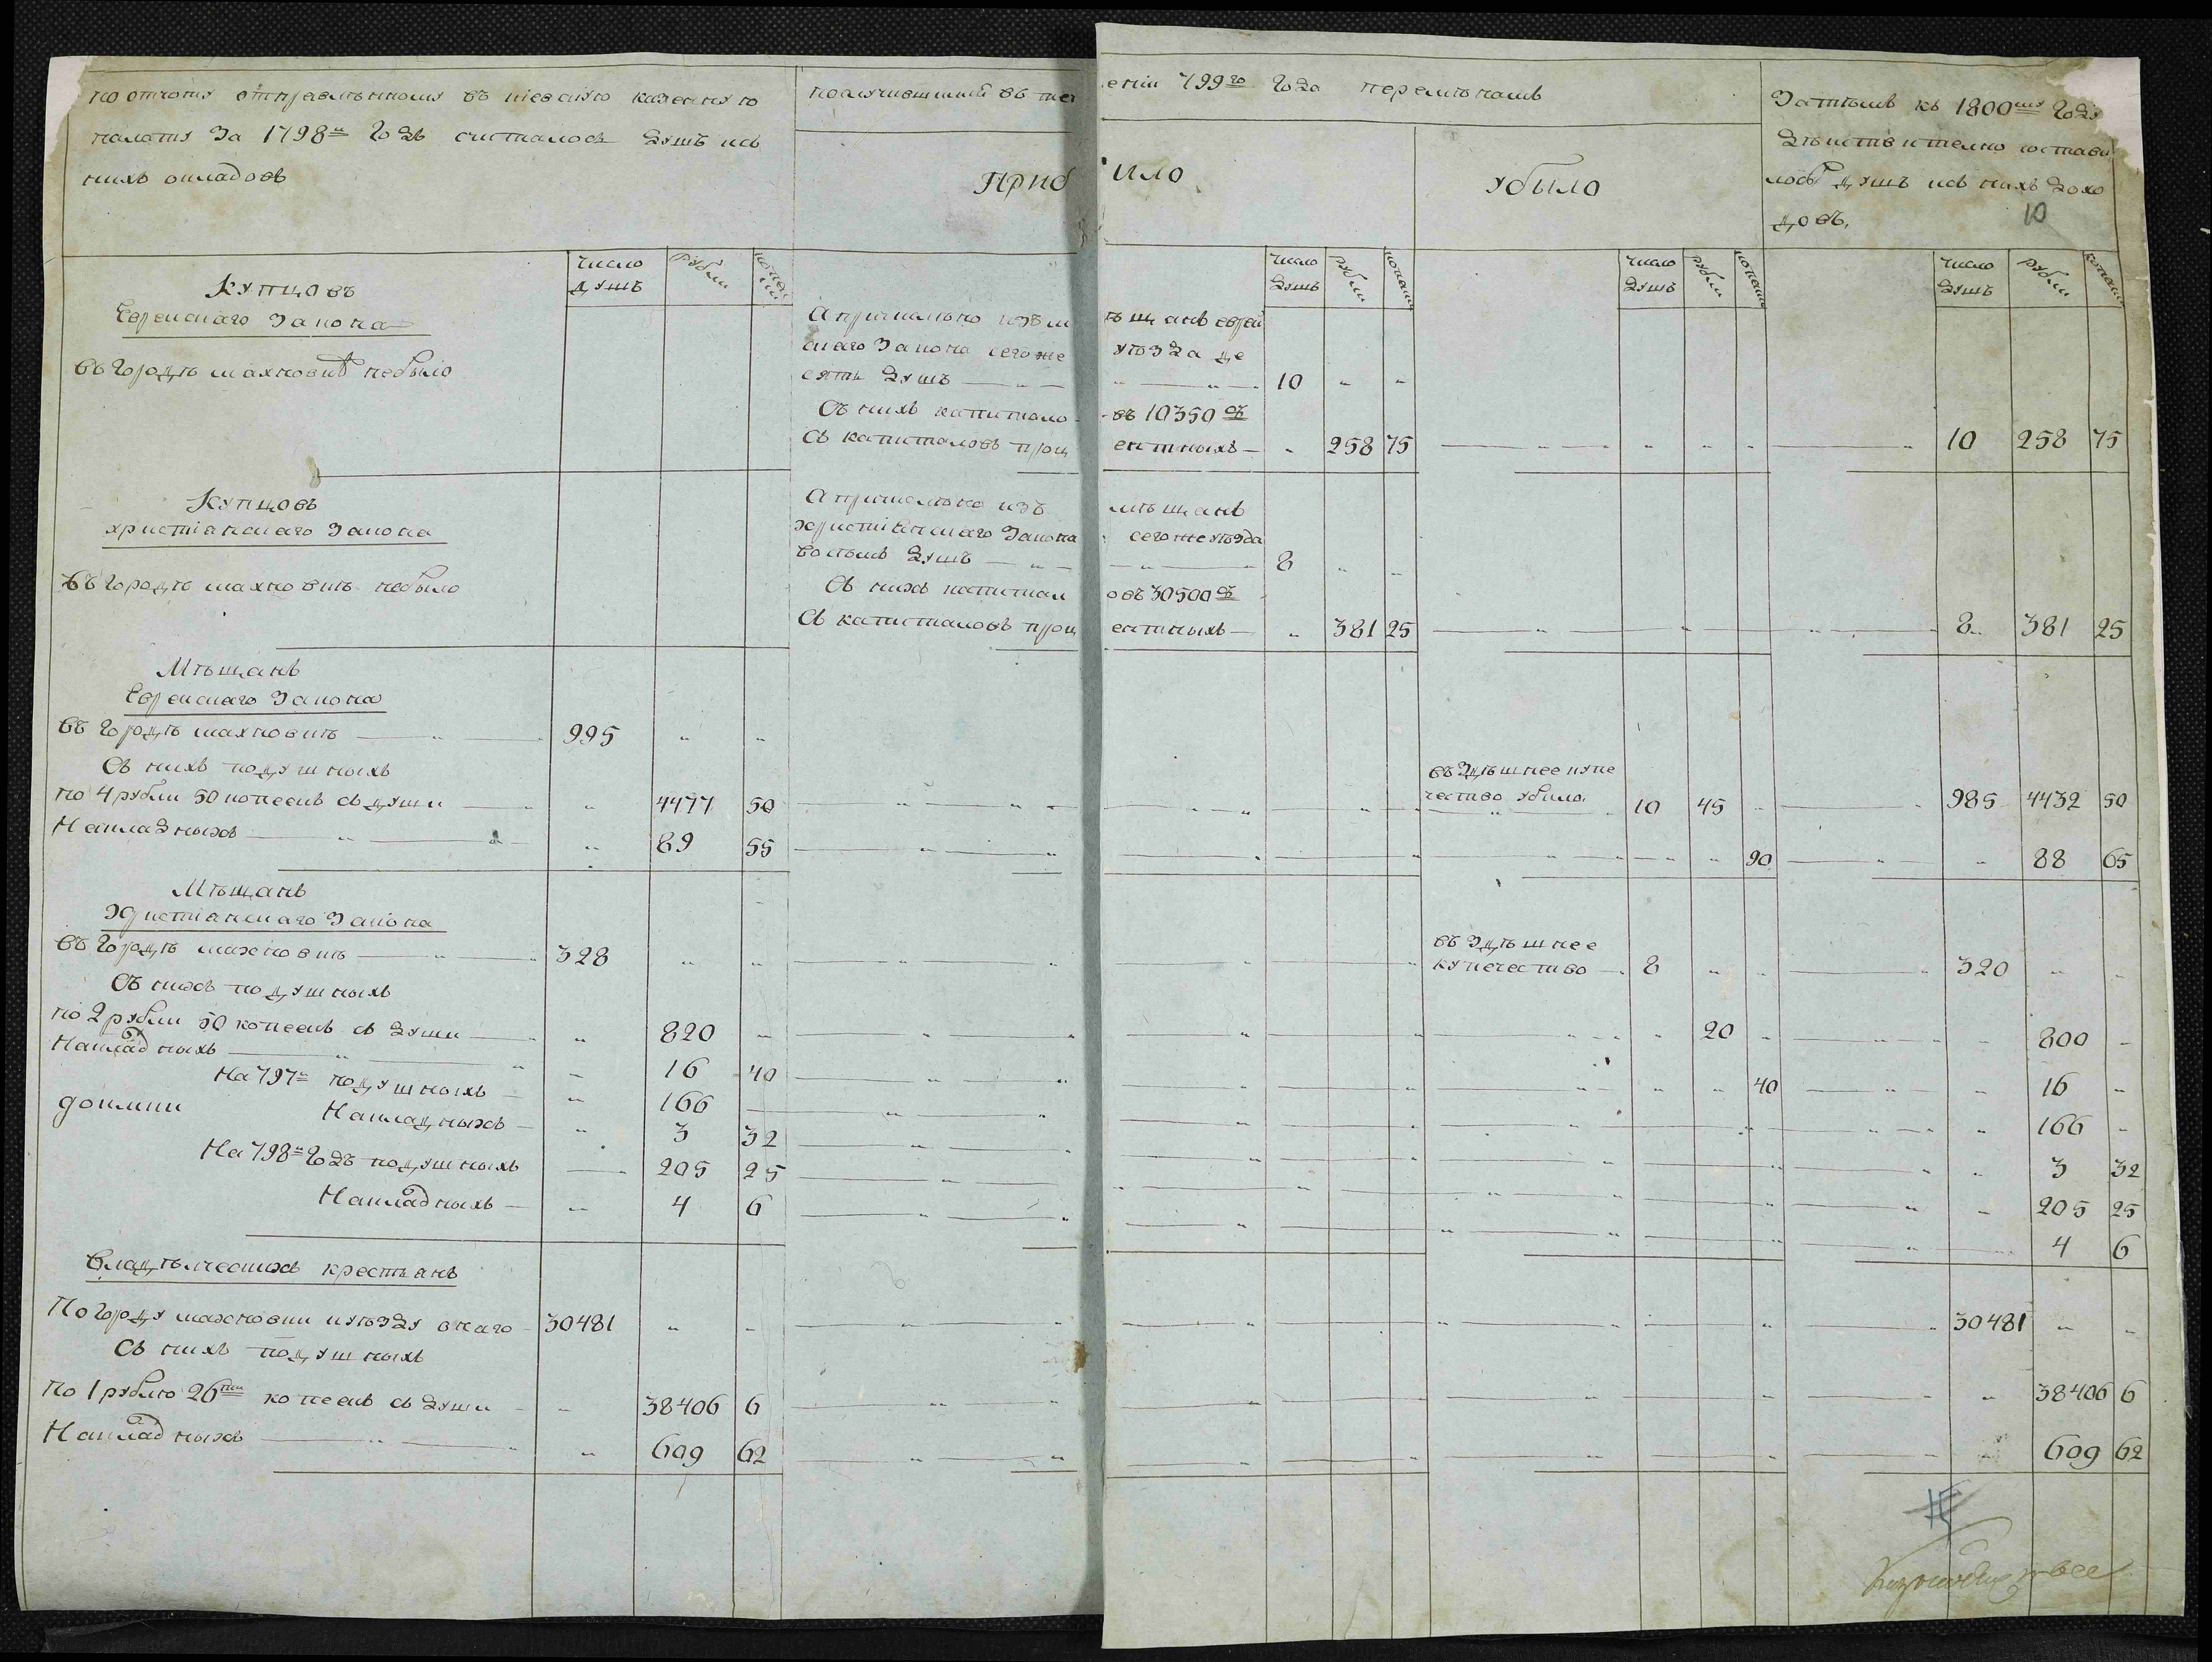 по отчоту отправленному въ киевскую казенную
палату За 1798й годъ считалось душъ исъ
нихъ окладовъ
получившихъ въ теч
ении 799го года перемѣнамъ
Приб
ило
убыло
Затѣмъ къ 1800му году
дѣиствително состави
лось душъ исъ нихъ дохо
довъ.
10
число душъ рубли копеи ки
число душъ рубли копеики
число душъ рубли копеики
число душъ рубли копеики
Купцовъ
Евреискаго Закона
въ городѣ махновкѣ небыло
А причислено изъ м
ѣщанъ евреи
скаго Закона сегоже
уѣзда де
сять душъ — „ —
„ — „ — 10 „ „
Съ нихъ капитало
въ 10350 съ
Съ капиталовъ проц
ентныхъ — „ 258 75 — „ — „ „ „ — „ 10 258 75
Купцовъ
христианскаго Закона
въ городѣ махновкѣ небыло
А причислено изъ
мѣщанъ
христианскаго Закона
сегоже уѣзда
восемь душъ — „ —
— „ — 8 „ „
Съ нихъ капитал
овъ 30500 съ
Съ капиталовъ проц
ентныхъ — „ 381 25 — „ — „ — „ — 8 „ 381 25
Мѣщанъ
Евреискаго Закона
въ городѣ махновкѣ — „ — 995 „ „
Съ нихъ подушныхъ
по 4 рубли 50 копеекъ съ души — „ 4477 50
въ здѣшнее купе
чество убыло 10 45 „ — „ 985 4432 50
Накладныхъ — „ — „ 89 55 — „ — „ 90 — „ — „ 88 65
Мѣщанъ
христианскаго Закона
въ городѣ махновкѣ — „ — 328 „ „
въ здѣшнее
купечество — 8 „ „ — „ 320 „ „
Съ нихъ подушныхъ
по 2 рубли 50 копеекъ съ души — „ 820 — „ — „ 20 „ — „ 800 „
Накладныхъ — „ — 16 40 — „ — „ 40 — „ — 16 „
На 797й подушныхъ — „ 166 — „ — „ 166 „
доимки
Накладныхъ — „ 3 32 — „ — „ 3 32
На 798й годъ подушныхъ — 205 25 — „ — „ 205 25
Накладныхъ — „ 4 6 — „ — „ 4 6
Владѣлческихъ крестьянъ
По городу махновки и уѣзду онаго — 30481 „ „ — „ — 30481 „ „
Съ нихъ подушныхъ
По 1 рублю 26ти копеекъ съ души — „ 38406 6 — „ — „ 38406 6
Накладныхъ — „ — „ 609 62 — „ — „ 609 62